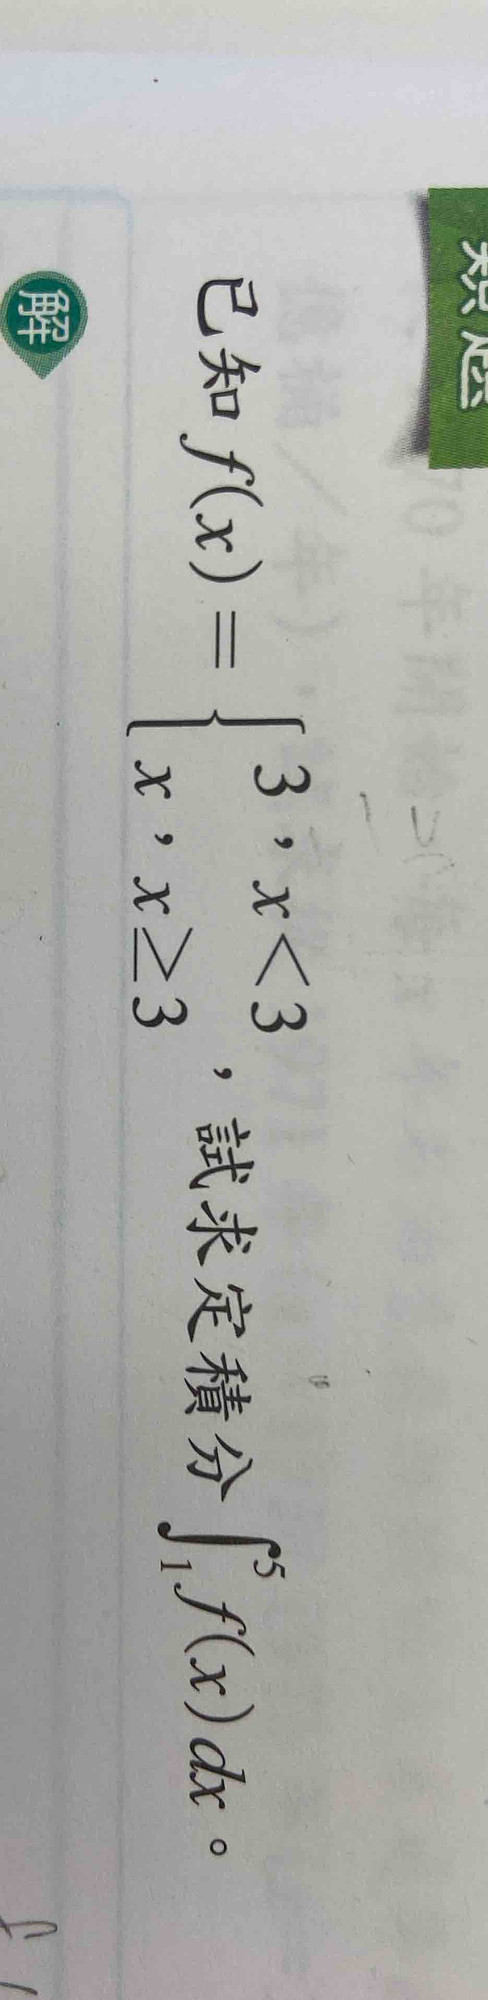 類題
已知 f(x) = { 3，x<3
x，x≥3 ，試求定積分 ∫₁⁵ f(x) dx。
解